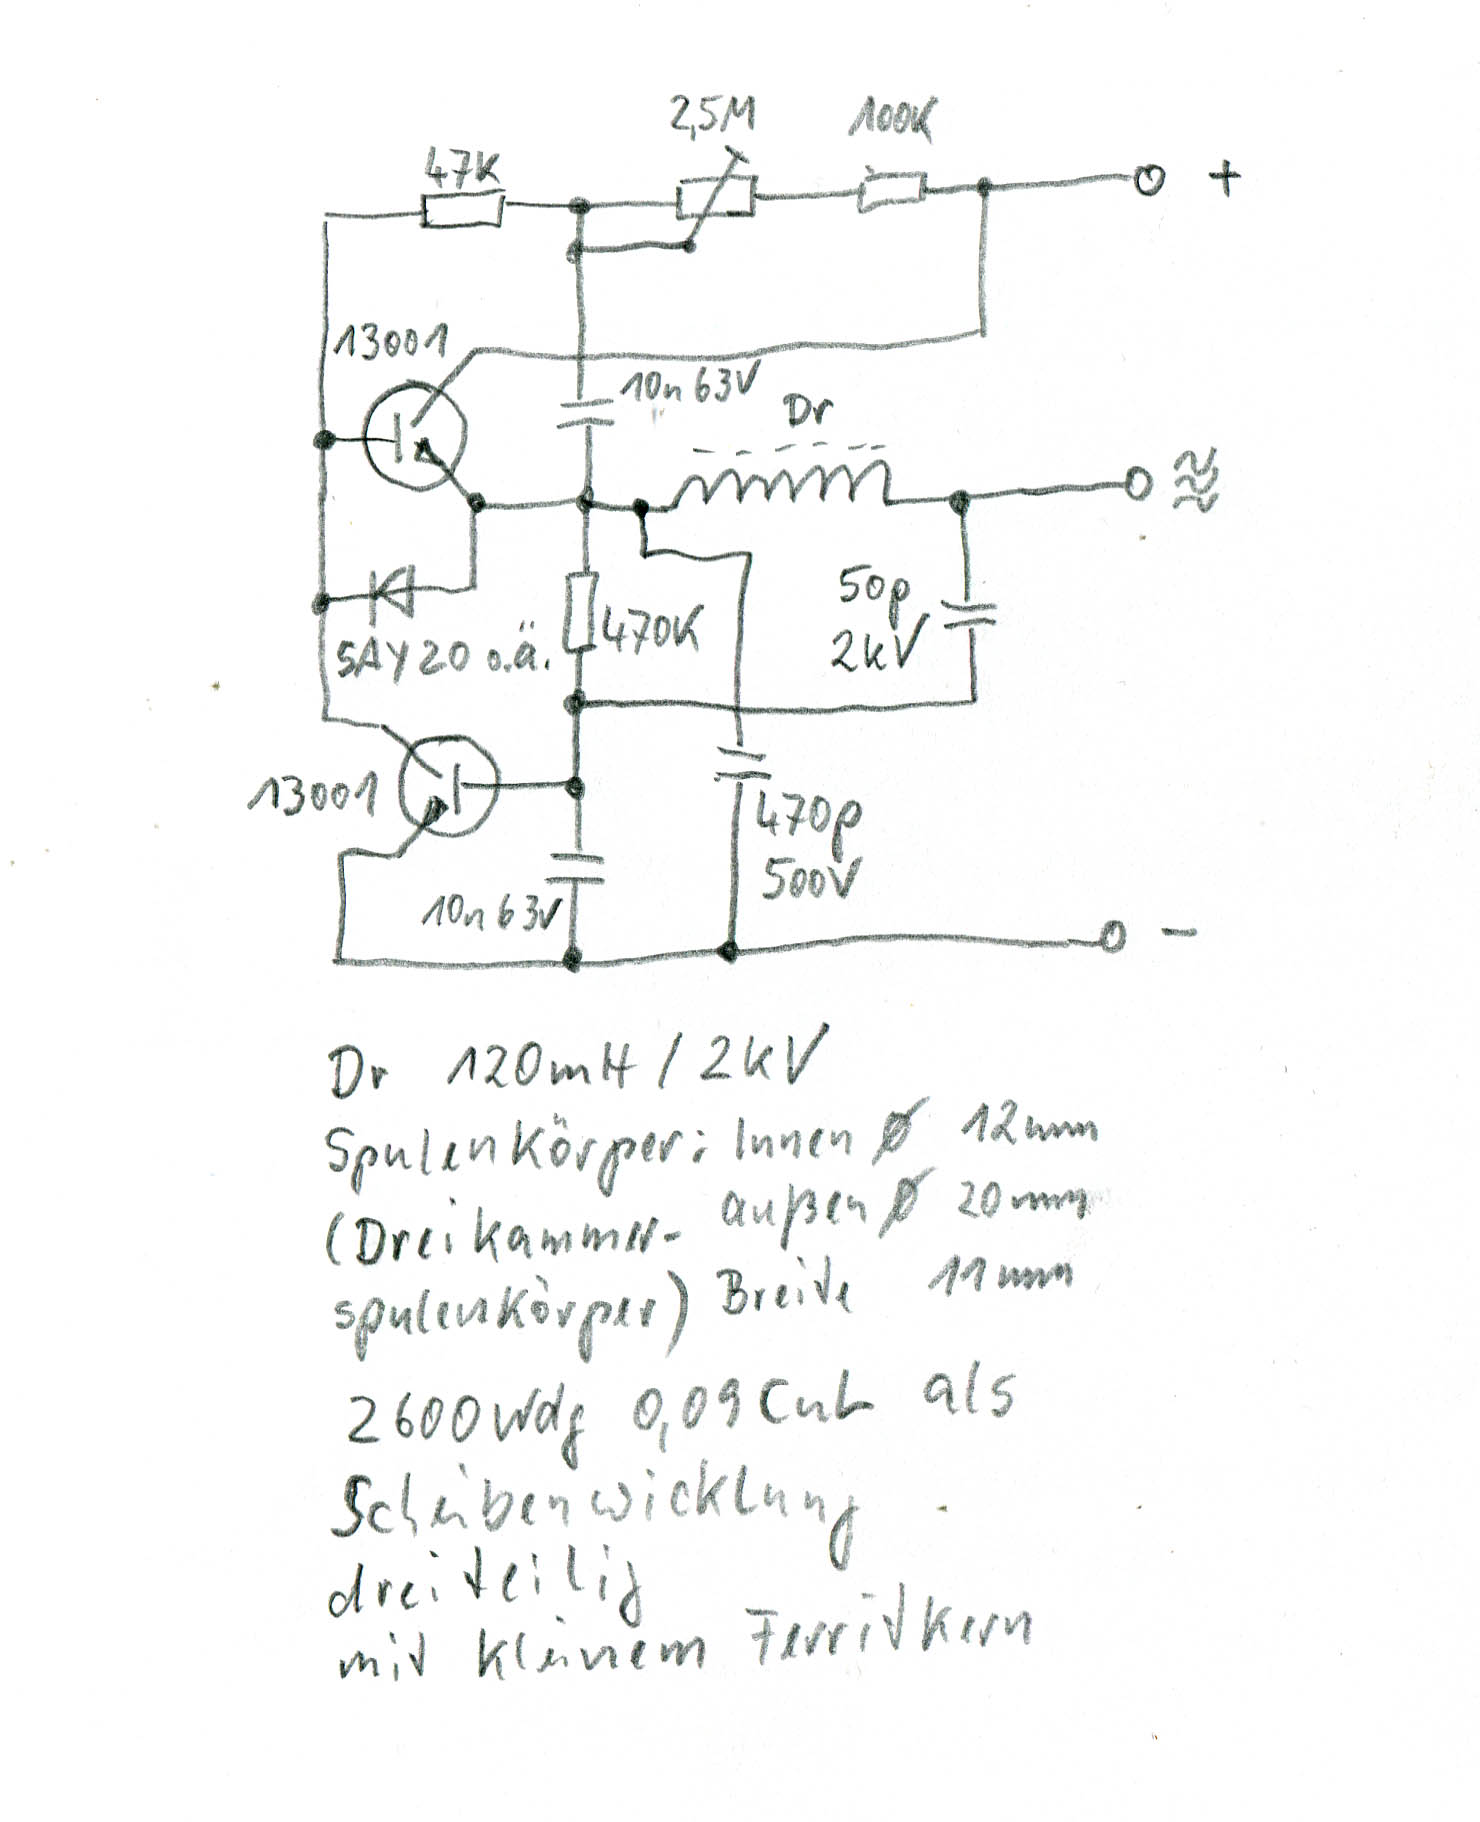 2,5M 100K
47K
+
13001
10n 63V
Dr
≈
50p
2kV
470K
SAY20 o.ä.
13001
470p
500V
10n 63V
-
Dr 120mH / 2kV
Spulenkörper: Innen Ø 12mm
(Dreikammer- außen Ø 20mm
spulenkörper) Breite 11mm
2600 Wdg 0,09 CuL als
Scheibenwicklung
dreiteilig
mit kleinem Ferritkern